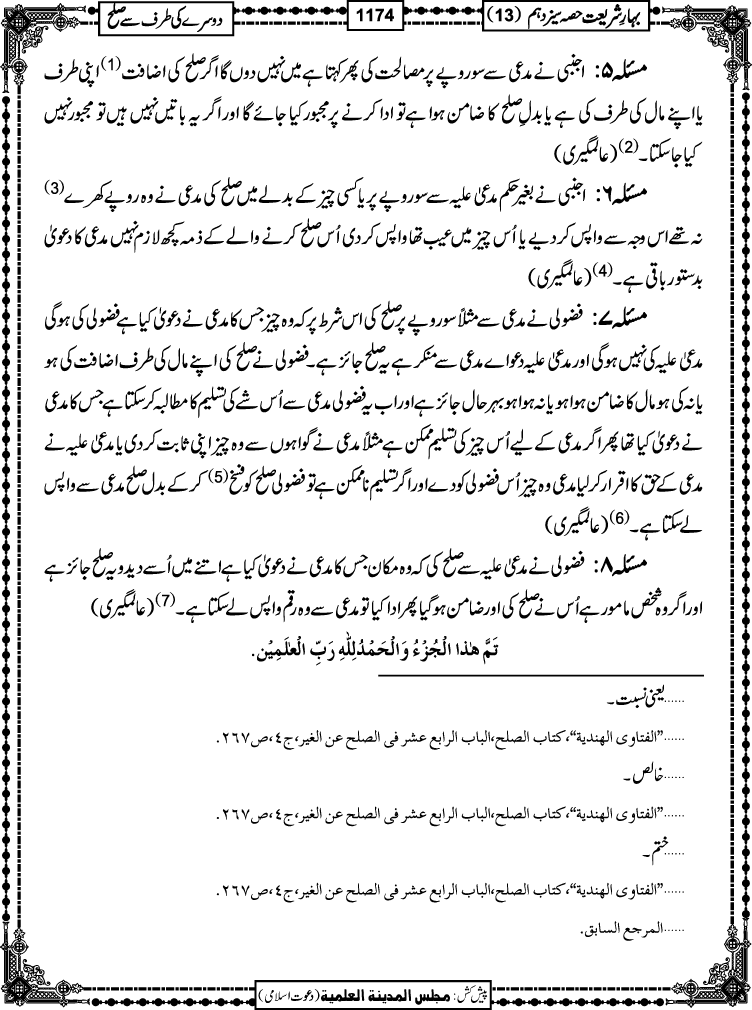 بہارِ شریعت حصہ سیزدہم (13)
1174
دوسرے کی طرف سے صلح
مسئلہ ۵: اجنبی نے مدعی سے سو روپے پر مصالحت کی پھر کہتا ہے میں نہیں دوں گا اگر صلح کی اضافت (1) اپنی طرف
یا اپنے مال کی طرف کی ہے یا بدلِ صلح کا ضامن ہوا ہے تو ادا کرنے پر مجبور کیا جائے گا اور اگر یہ باتیں نہیں ہیں تو مجبور نہیں
کیا جاسکتا۔ (2) (عالمگیری)
مسئلہ ۶: اجنبی نے بغیر حکم مدعیٰ علیہ سے سو روپے پر یا کسی چیز کے بدلے میں صلح کی مدعی نے وہ روپے کھرے (3)
نہ تھے اس وجہ سے واپس کر دیے یا اُس چیز میں عیب تھا واپس کر دی اُس صلح کرنے والے کے ذمہ کچھ لازم نہیں مدعی کا دعویٰ
بدستور باقی ہے۔ (4) (عالمگیری)
مسئلہ ۷: فضولی نے مدعی سے مثلاً سو روپے پر صلح کی اس شرط پر کہ وہ چیز جس کا مدعی نے دعویٰ کیا ہے فضولی کی ہوگی
مدعیٰ علیہ کی نہیں ہوگی اور مدعیٰ علیہ دعواے مدعی سے منکر ہے یہ صلح جائز ہے۔ فضولی نے صلح کی اپنے مال کی طرف اضافت کی ہو
یا نہ کی ہو مال کا ضامن ہوا ہو یا نہ ہوا ہو بہر حال جائز ہے اور اب یہ فضولی مدعی سے اُس شے کی تسلیم کا مطالبہ کرسکتا ہے جس کا مدعی
نے دعویٰ کیا تھا پھر اگر مدعی کے لیے اُس چیز کی تسلیم ممکن ہے مثلاً مدعی نے گواہوں سے وہ چیز اپنی ثابت کر دی یا مدعیٰ علیہ نے
مدعی کے حق کا اقرار کر لیا مدعی وہ چیز اُس فضولی کو دے اور اگر تسلیم ناممکن ہے تو فضولی صلح کو فسخ (5) کر کے بدل صلح مدعی سے واپس
لے سکتا ہے۔ (6) (عالمگیری)
مسئلہ ۸: فضولی نے مدعیٰ علیہ سے صلح کی کہ وہ مکان جس کا مدعی نے دعویٰ کیا ہے اتنے میں اُسے دیدو یہ صلح جائز ہے
اور اگر وہ شخص مامور ہے اُس نے صلح کی اور ضامن ہوگیا پھر ادا کیا تو مدعی سے وہ رقم واپس لے سکتا ہے۔ (7) (عالمگیری)
تَمَّ ھٰذا الْجُزْءُ وَالْحَمْدُلِلّٰہِ رَبِّ الْعٰلَمِیْن.
......یعنی نسبت۔
......”الفتاوی الهندیة“،کتاب الصلح،الباب الرابع عشر فی الصلح عن الغیر،ج٤،ص٢٦٧.
......خالص۔
......”الفتاوی الهندیة“،کتاب الصلح،الباب الرابع عشر فی الصلح عن الغیر،ج٤،ص٢٦٧.
......ختم۔
......”الفتاوی الهندیة“،کتاب الصلح،الباب الرابع عشر فی الصلح عن الغیر،ج٤،ص٢٦٧.
......المرجع السابق.
پیش کش: مجلس المدینة العلمیة (دعوت اسلامی)